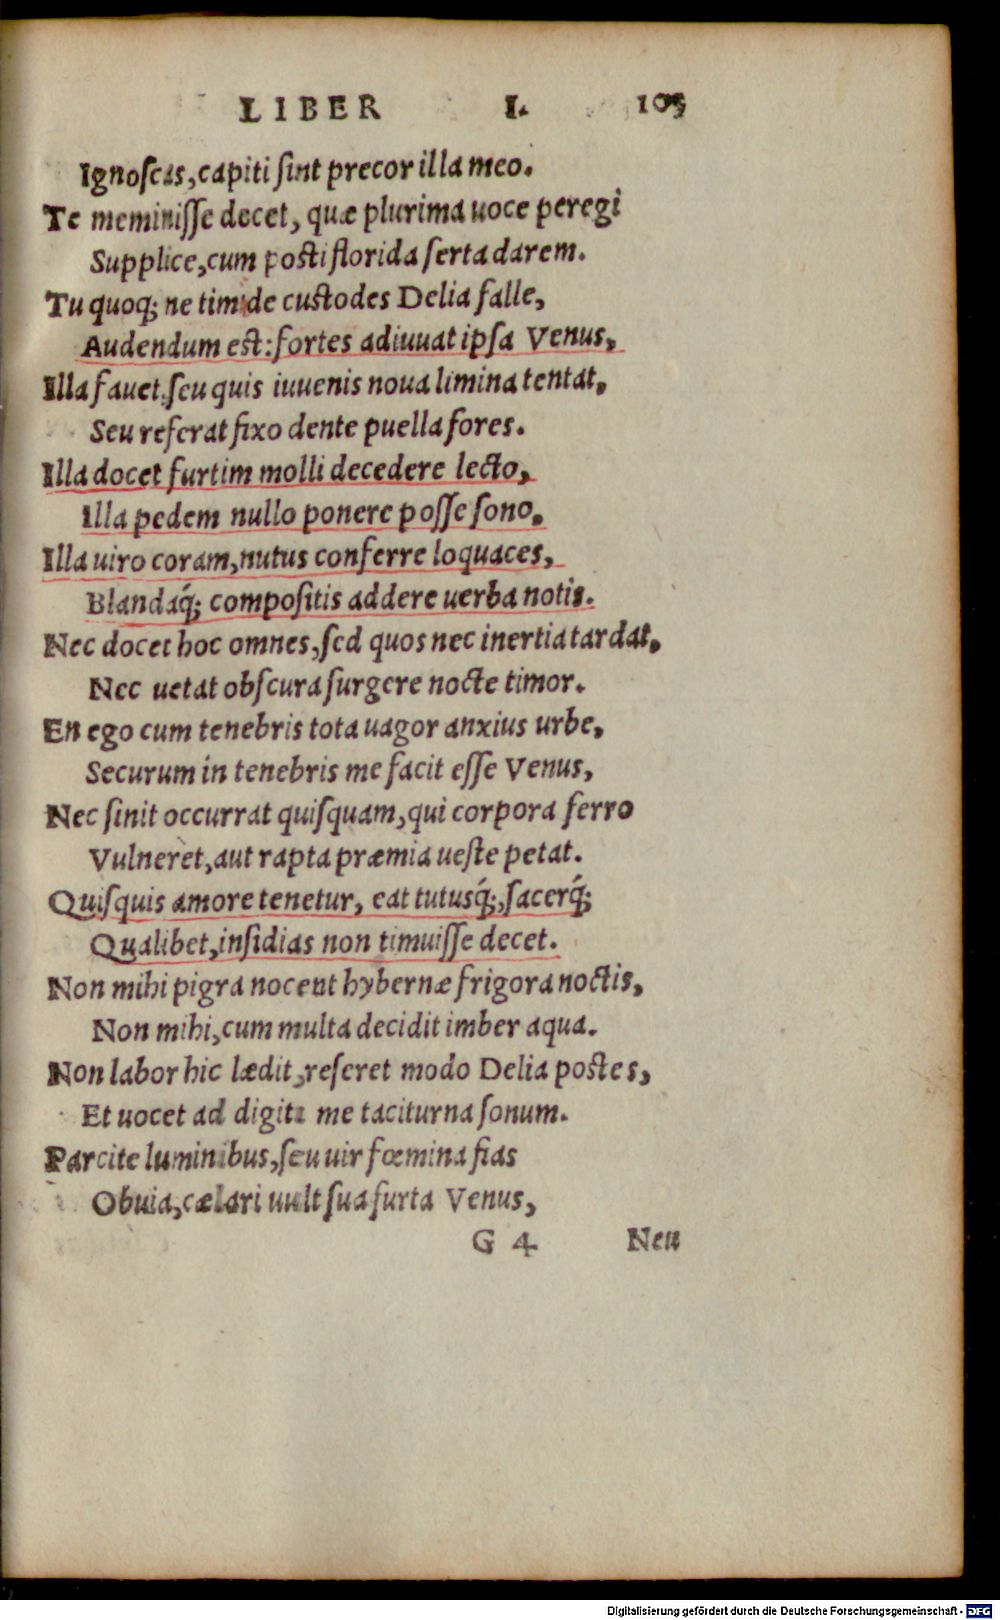 LIBER I. 105
Ignoscas, capiti sint precor illa meo.
Te meminisse decet, quæ plurima uoce peregi
Supplice, cum posti florida serta darem.
Tu quoq; ne timide custodes Delia falle,
Audendum est: fortes adiuuat ipsa Venus,
Illa fauet. seu quis iuuenis noua limina tentat,
Seu referat fixo dente puella fores.
Illa docet furtim molli decedere lecto,
Illa pedem nullo ponere posse sono.
Illa uiro coram, nutus conferre loquaces,
Blandaq́; compositis addere uerba notis.
Nec docet hoc omnes, sed quos nec inertia tardat,
Nec uetat obscura surgere nocte timor.
En ego cum tenebris tota uagor anxius urbe,
Securum in tenebris me facit esse Venus,
Nec sinit occurrat quisquam, qui corpora ferro
Vulneret, aut rapta præmia ueste petat.
Quisquis amore tenetur, eat tutusq́;, sacerq́;
Qualibet, insidias non timuisse decet.
Non mihi pigra nocent hybernæ frigora noctis,
Non mihi, cum multa decidit imber aqua.
Non labor hic lædit, reseret modo Delia postes,
Et uocet ad digiti me taciturna sonum.
Parcite luminibus, seu uir fœmina fias
Obuia, cælari uult sua furta Venus,
G 4 Neu
Digitalisierung gefördert durch die Deutsche Forschungsgemeinschaft - DFG